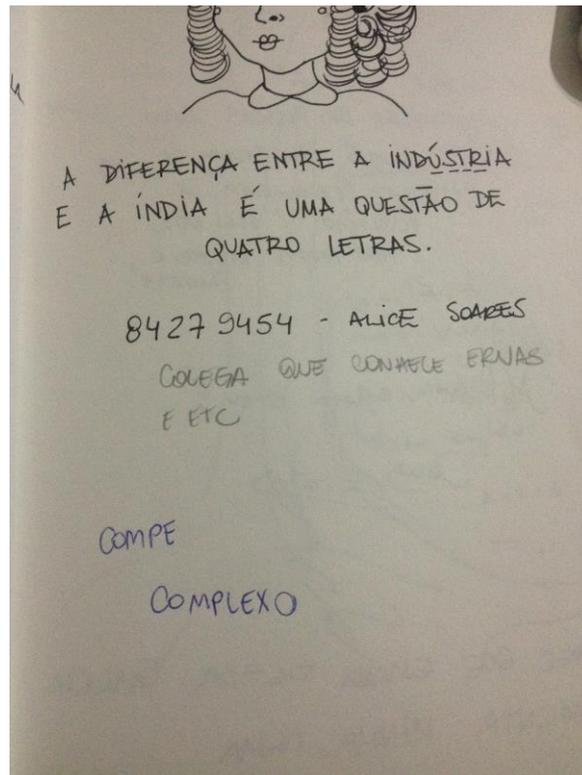 A DIFERENÇA ENTRE A INDÚSTRIA
E A ÍNDIA É UMA QUESTÃO DE
QUATRO LETRAS.
84279454 - ALICE SOARES
COLEGA QUE CONHECE ERVAS
E ETC
COMPE
COMPLEXO